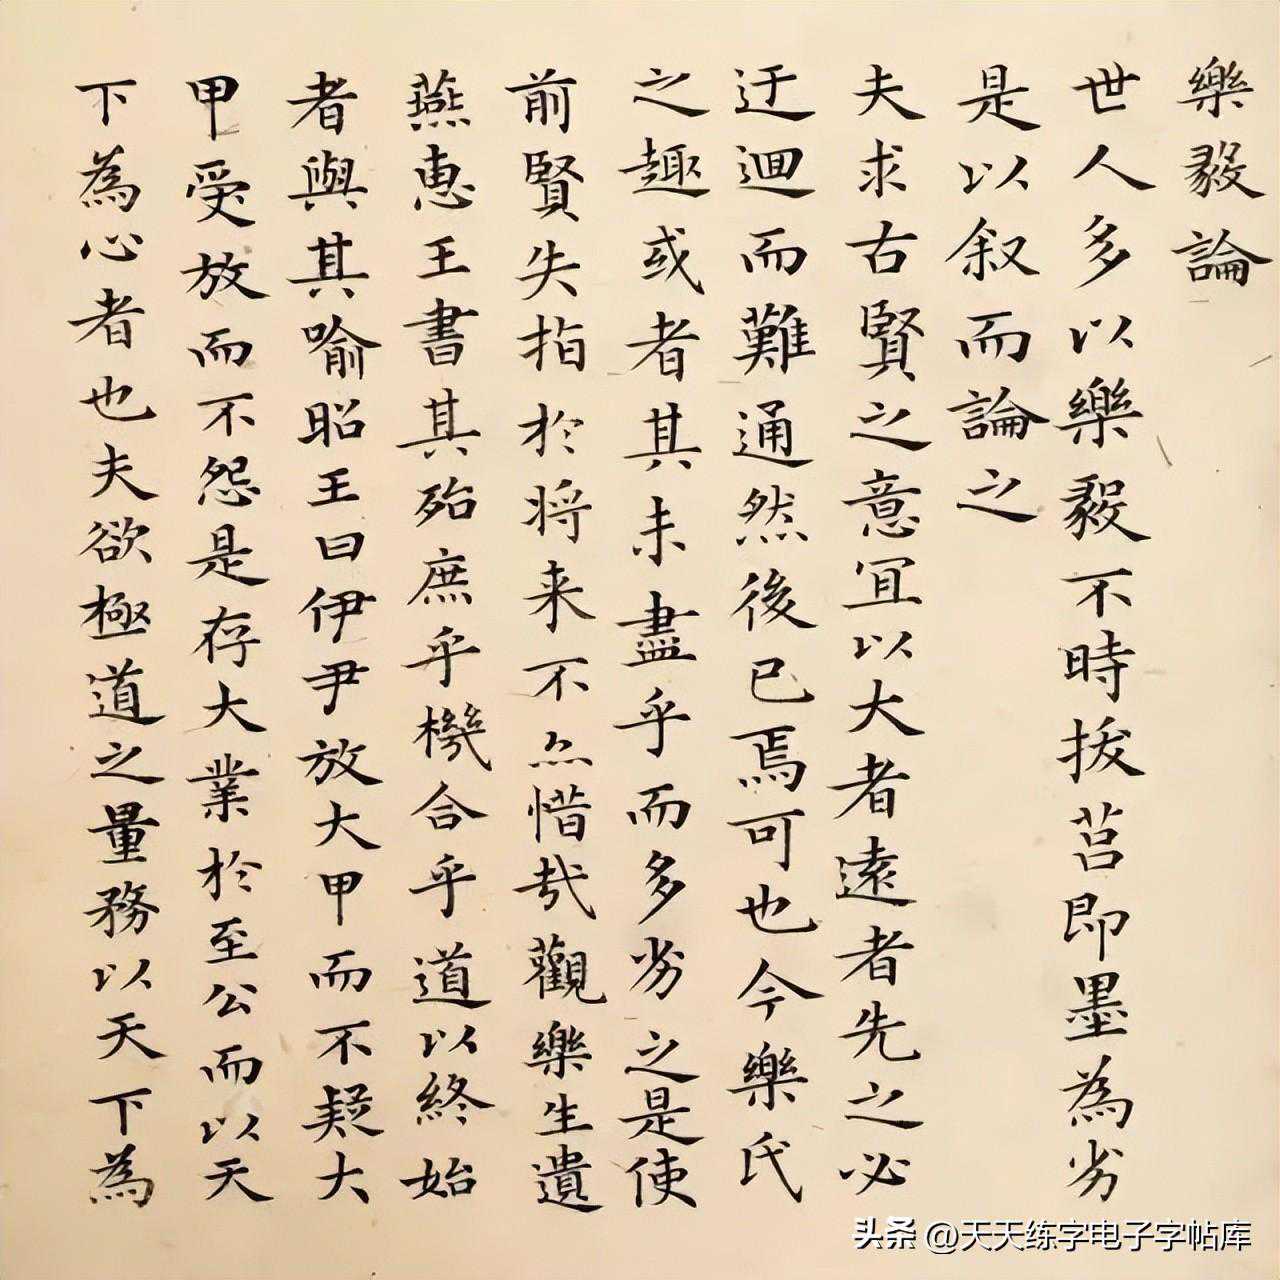 樂毅論
世人多以樂毅不時拔莒即墨為劣
是以叙而論之
夫求古賢之意宜以大者遠者先之必
迂迴而難通然後已焉可也今樂氏
之趣或者其未盡乎而多劣之是使
前賢失指於将来不亦惜哉觀樂生遺
燕惠王書其殆庶乎機合乎道以終始
者與其喻昭王曰伊尹放大甲而不疑大
甲受放而不怨是存大業於至公而以天
下為心者也夫欲極道之量務以天下為
头条 @天天练字电子字帖库